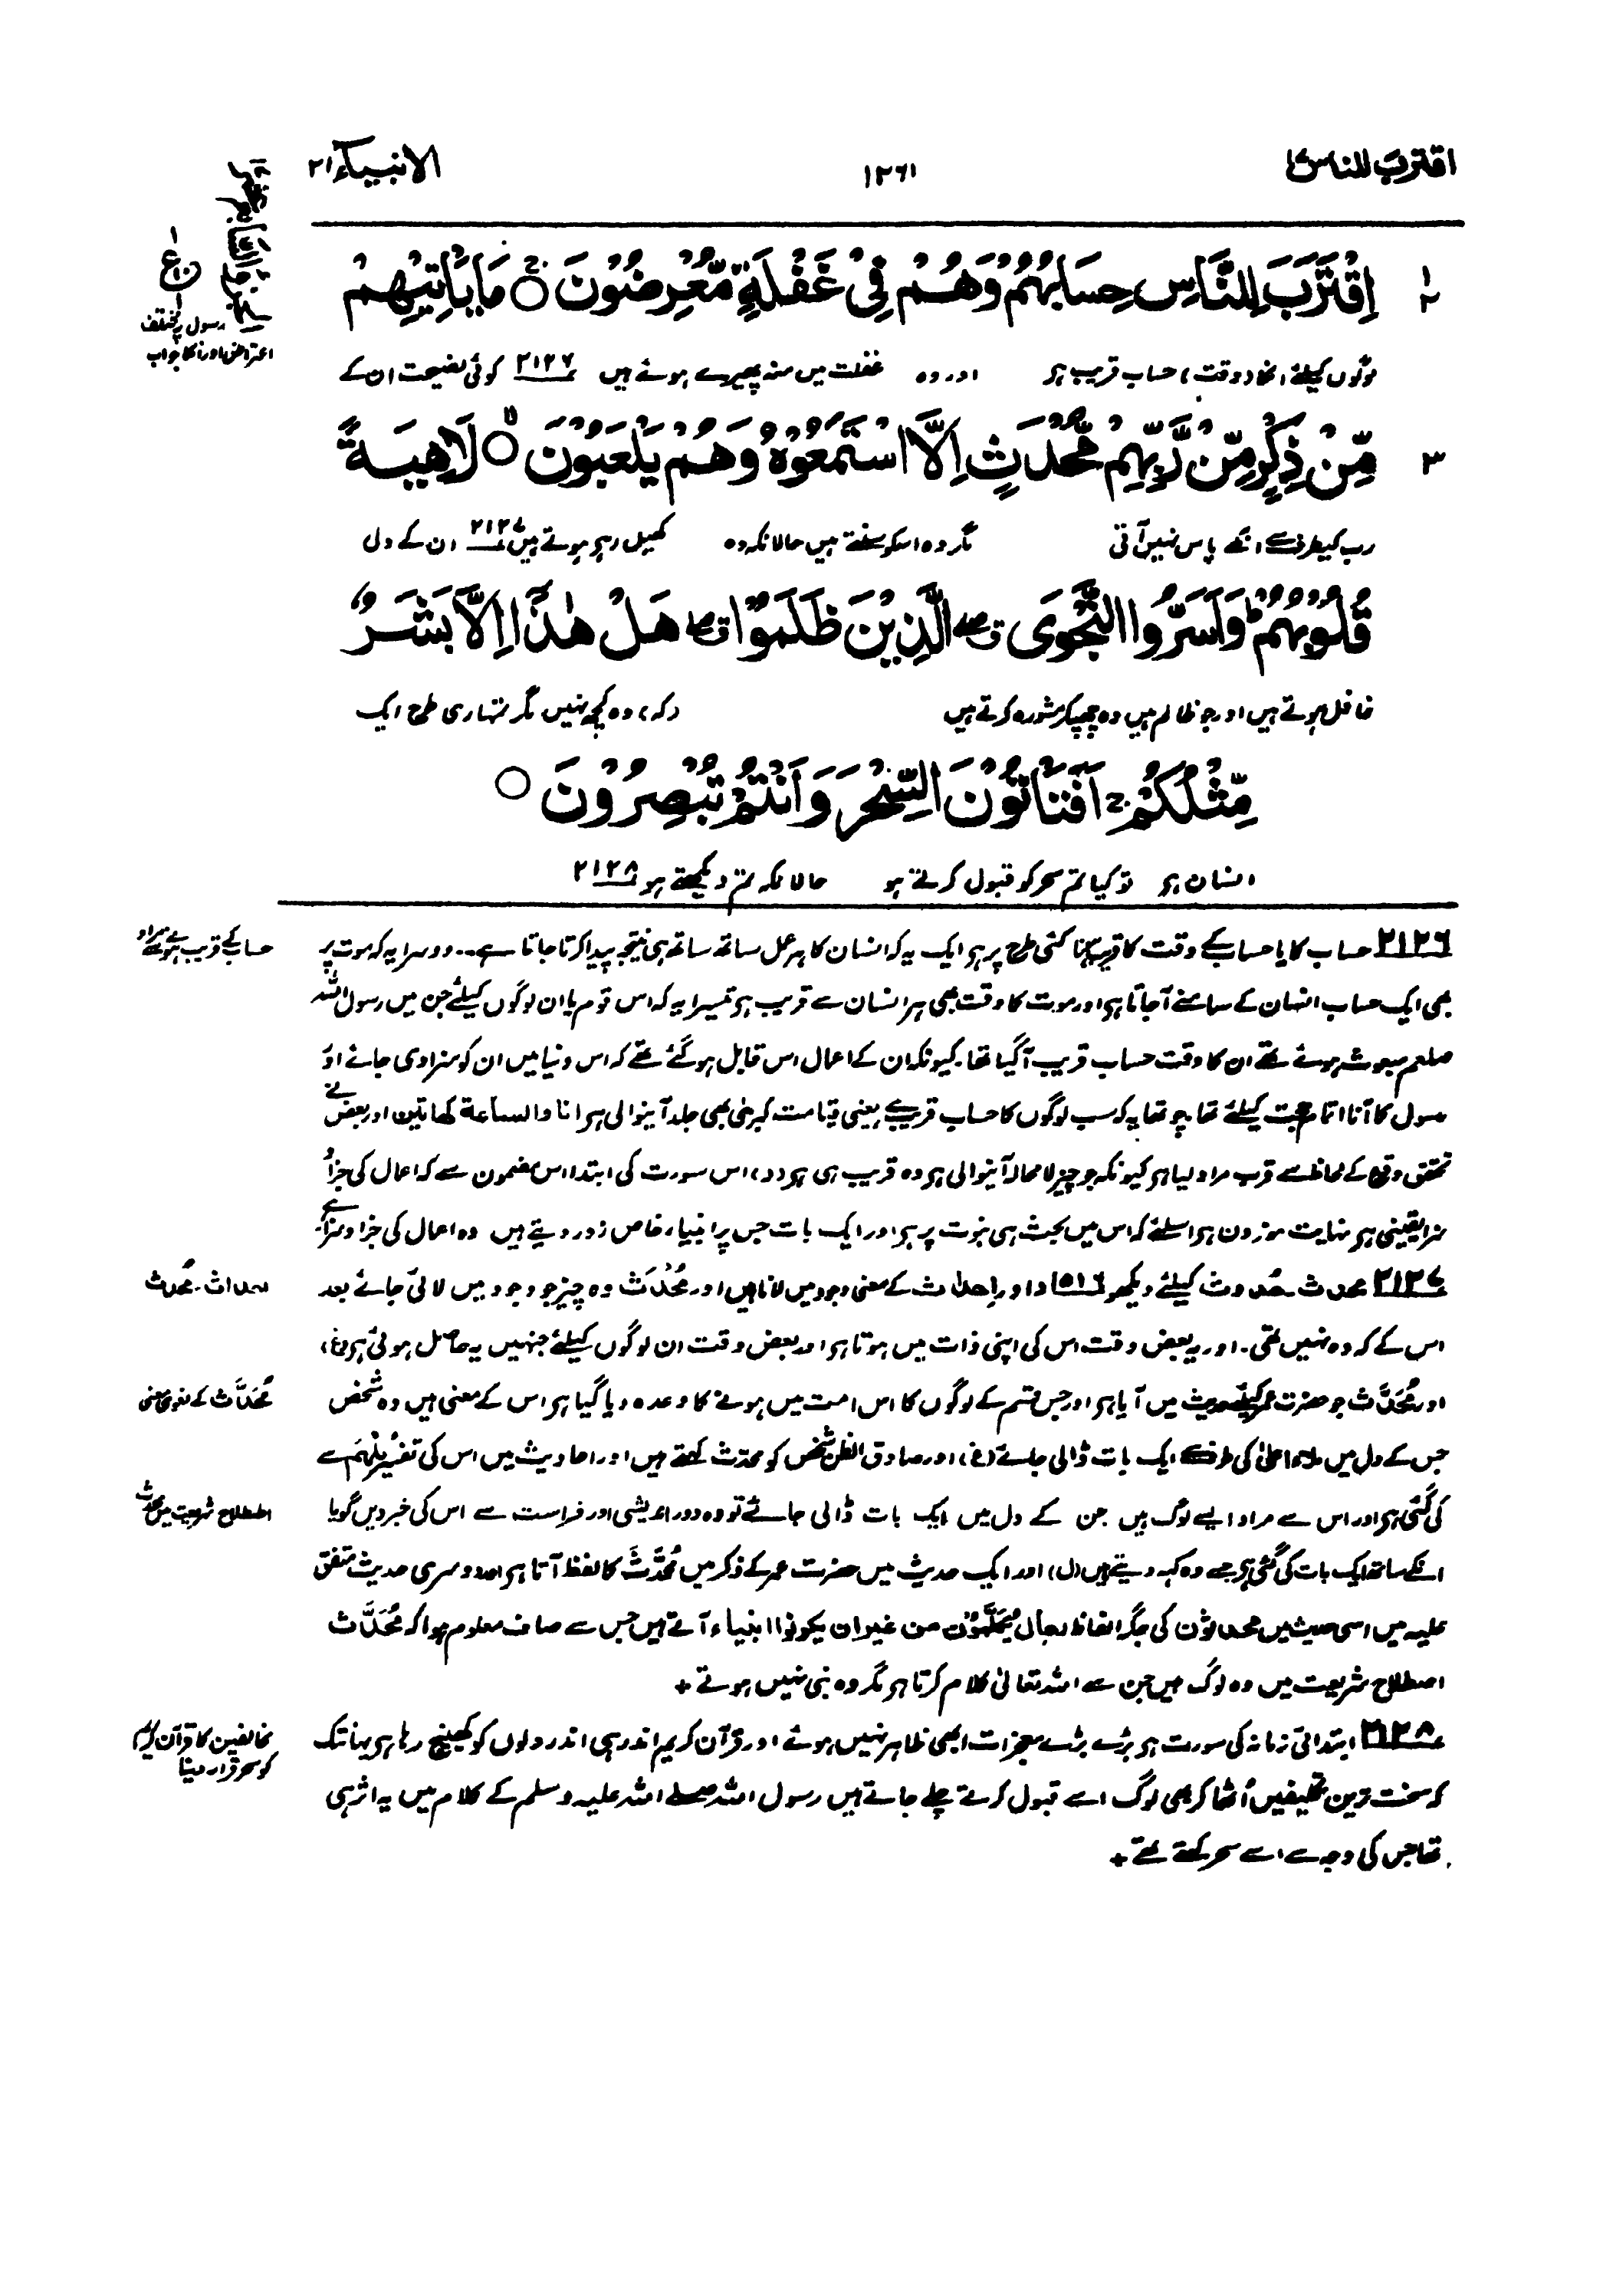 اقترب للناس ۱۷
۱۲۶۱
الانبیآء ۲۱
اِقْتَرَبَ لِلنَّاسِ حِسَابُهُمْ وَهُمْ فِیْ غَفْلَةٍ مُّعْرِضُوْنَ ۚ○ مَا یَاْتِیْهِمْ
۱
۲
ع
رسول پر مختلف
اعتراض اور انکا جواب
لوگوں کیلئے انکا (وقت) حساب قریب ہر اور وہ غفلت میں منہ پھیرے ہوئے ہیں ۲۱۲۶ کوئی نصیحت ان کے
مِّنْ ذِكْرٍ مِّنْ رَّبِّهِمْ مُّحْدَثٍ اِلَّا اسْتَمَعُوْهُ وَهُمْ یَلْعَبُوْنَ ۙ○ لَاهِیَةً
۳
رب کیطرف سے انکے پاس نہیں آتی مگر وہ اسکو سنتے ہیں حالانکہ وہ کھیل رہے ہوتے ہیں ۲۱۲۷ ان کے دل
قُلُوْبُهُمْ ؕ وَاَسَرُّوا النَّجْوَی ۖ الَّذِیْنَ ظَلَمُوْا ۖ هَلْ هٰذَا اِلَّا بَشَرٌ
غافل ہوتے ہیں اور جو ظالم ہیں وہ چھپکر مشورہ کرتے ہیں (کہ) وہ کچھ نہیں مگر تمہاری طرح ایک
مِّثْلُكُمْ ۚ اَفَتَاْتُوْنَ السِّحْرَ وَاَنْتُمْ تُبْصِرُوْنَ ○
انسان ہر تو کیا تم سحر کو قبول کرتے ہو حالانکہ تم دیکھتے ہو ۲۱۲۸
۲۱۲۶ حساب کا یا حساب کے وقت کا قریب آنا کئی طرح پر ہر ایک یہ کہ انسان کا ہر عمل ساتھ ساتھ ہی نتیجہ پیدا کرتا جاتا ہے.. دوسرا یہ کہ موت پر
حساب کے قریب ہونے سے مراد
بھی ایک حساب انسان کے سامنے آجاتا ہر اور موت کا وقت بھی ہر انسان سے قریب ہر تیسرا یہ کہ اس قوم یا ان لوگوں کیلئے جن میں رسول اللہ
صلعم مبعوث ہوئے تھے ان کا وقت حساب قریب آگیا تھا۔ کیونکہ ان کے اعمال اس قابل ہو گئے تھے کہ اس دنیا میں ان کو سزا دی جائے اور
رسول کا آنا اتمام حجت کیلئے تھا چوتھا یہ کہ سب لوگوں کا حساب قریب ہے یعنی قیامت کبریٰ بھی جلد آنیوالی ہر انا والساعة کھاتین اور بعض نے
تحقق وقوع کے لحاظ سے قرب مراد لیا ہر کیونکہ جو چیز لامحالہ آنیوالی ہر وہ قریب ہی ہر (د) اس سورت کی ابتدا اس مضمون سے کہ اعمال کی جزا و
سزا یقینی ہر نہایت موزون ہر اسلئے کہ اس میں بحث ہی نبوت پر ہر اور ایک بات جس پر انبیاء خاص زور دیتے ہیں وہ اعمال کی جزا و سزا ہے
۲۱۲۷ محدث۔ حُدوث کیلئے دیکھو ۱۵۱۶ اور اِحداث کے معنی وجود میں لانا ہیں اور مُحْدَث وہ چیز جو وجود میں لائی جائے بعد
احداث۔ مُحدث
اس کے کہ وہ نہیں تھی۔ اور یہ بعض وقت اس کی اپنی ذات میں ہوتا ہر اور بعض وقت ان لوگوں کیلئے جنہیں یہ حاصل ہوئی ہر (غ)
اور مُحَدَّث جو حضرت عمر کیلئے حدیث میں آیا ہر اور جس قسم کے لوگوں کا اس امت میں ہونے کا وعدہ دیا گیا ہر اس کے معنی ہیں وہ شخص
مُحَدَّث کے لغوی معنی
جس کے دل میں ملاء اعلیٰ کی طرف سے ایک بات ڈالی جائے (غ) اور صادق الظن شخص کو محدث کہتے ہیں اور احادیث میں اس کی تفسیر مُلْهَم سے
کی گئی ہر اور اس سے مراد ایسے لوگ ہیں جن کے دل میں ایک بات ڈالی جائے تو وہ دور اندیشی اور فراست سے اس کی خبر دیں گویا
اصطلاح شریعت میں محدث
انکے ساتھ ایک بات کی گئی ہر جسے وہ کہہ دیتے ہیں (ل) اور ایک حدیث میں حضرت عمر کے ذکر میں مُحَدَّث کا لفظ آتا ہر اور دوسری حدیث متفق
علیہ میں اسی حدیث میں محدثون کی جگہ الفاظ رجال یُکَلَّمُوْن من غیر ان یکونوا انبیاء آتے ہیں جس سے صاف معلوم ہوا کہ مُحَدَّث
اصطلاح شریعت میں وہ لوگ ہیں جن سے اللہ تعالیٰ کلام کرتا ہر مگر وہ نبی نہیں ہوتے +
۲۱۲۸ ابتدائی زمانہ کی سورت ہر بڑے بڑے معجزات ابھی ظاہر نہیں ہوئے اور قرآن کریم اندر ہی اندر دلوں کو کھینچ رہا ہر یہانتک
مخالفین کا قرآن کریم
کو سحر قرار دینا
کہ سخت ترین تکلیفیں اُٹھا کر بھی لوگ اسے قبول کرتے چلے جاتے ہیں رسول اللہ صلے اللہ علیہ وسلم کے کلام میں یہ اثر ہی
تھا جس کی وجہ سے اسے سحر کہتے تھے +